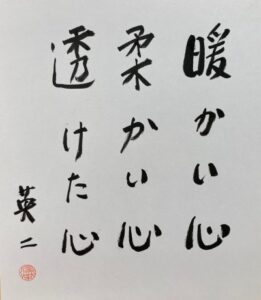 暖かい心
柔かい心
透けた心
英二